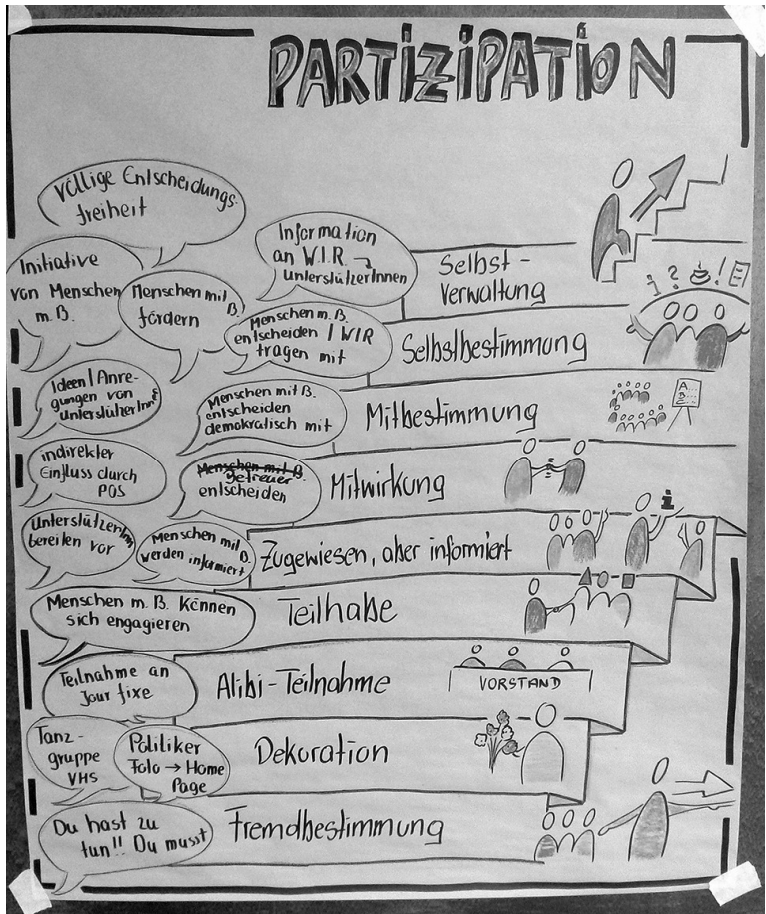 PARTIZIPATION
völlige Entscheidungs-
freiheit
Information
an W.I.R. →
UnterstützerInnen
Selbst-
verwaltung
Initiative
von Menschen
m. B.
Menschen mit B.
fördern
Menschen m. B.
entscheiden / WIR
tragen mit
i ? !
Selbstbestimmung
Ideen / Anre-
gungen von
UnterstüherInnen
Menschen mit B.
entscheiden
demokratisch mit
Mitbestimmung
A...
B...
indirekter
Einfluss durch
POS
Menschen mit B.
Betreuer
entscheiden
Mitwirkung
UnterstützerInnen
bereiten vor
Menschen mit B.
werden informiert
Zugewiesen, aber informiert
i
Menschen m. B. können
sich engagieren
Teilhabe
Teilnahme an
Jour fixe
Alibi-Teilnahme
VORSTAND
Tanz-
gruppe
VHS
Politiker
Foto → Home
Page
Dekoration
Du hast zu
tun!! Du musst
Fremdbestimmung